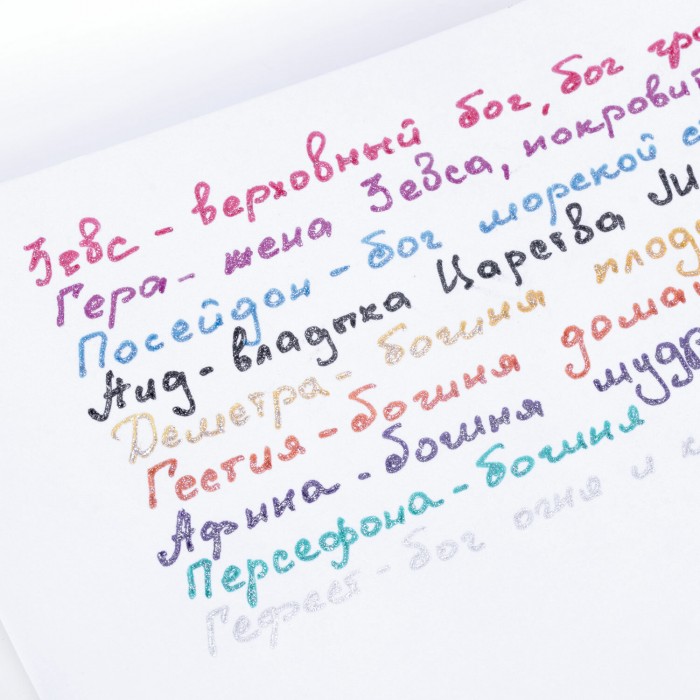 Зевс - верховный бог, бог гро
Гера - жена Зевса, покровит
Посейдон - бог морской с
Аид - владыка Царства
Деметра - богиня плод
Гестия - богиня дома
Афина - богиня мудр
Персефона - богиня
Гефест - бог огня и к